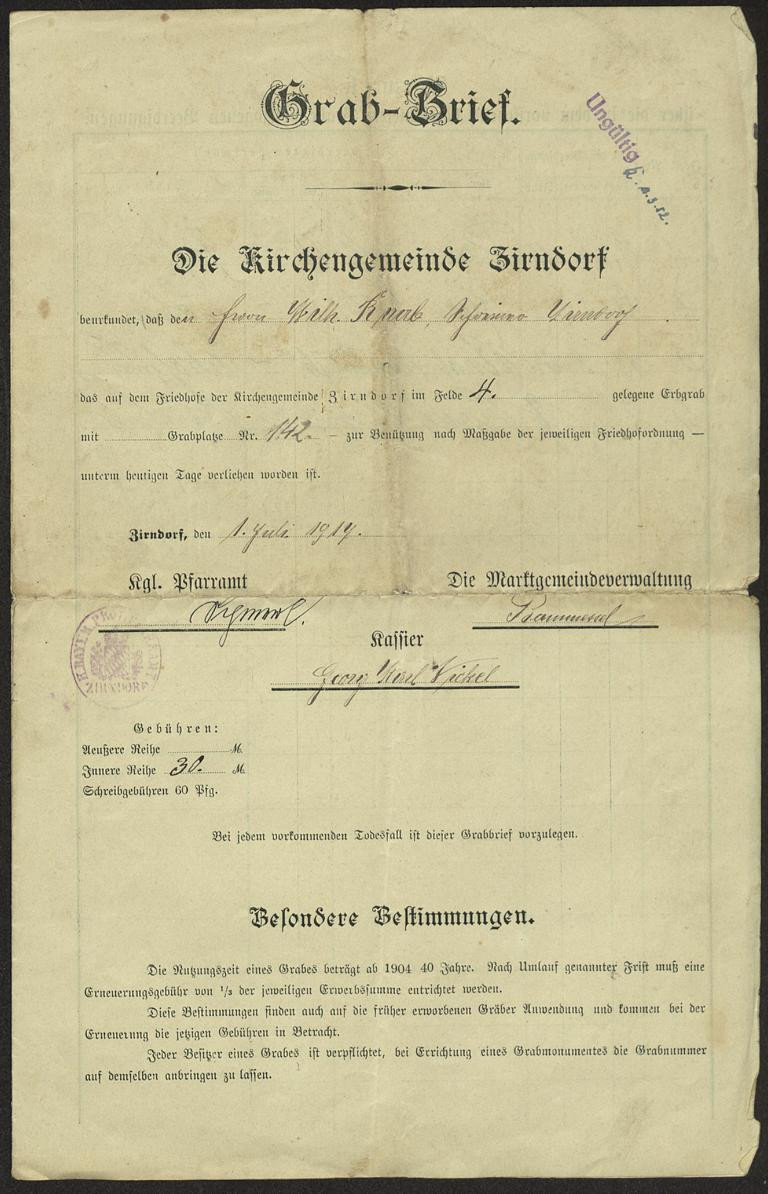 Grab-Brief.
Ungültig
Die Kirchengemeinde Zirndorf
beurkundet, daß den Herrn Wilh. Knab, Schreiner Zirndorf
das auf dem Friedhofe der Kirchengemeinde Zirndorf im Felde 4. gelegene Erbgrab
mit Grabplatze Nr. 142. – zur Benützung nach Maßgabe der jeweiligen Friedhofordnung —
unterm heutigen Tage verliehen worden ist.
Zirndorf, den 1. Juli 1919.
Kgl. Pfarramt Die Marktgemeindeverwaltung
Kassier
Georg Karl Nickel
K. BAYER. PROT. PFARRAMT ZIRNDORF
Gebühren:
Aeußere Reihe M.
Innere Reihe 30. M.
Schreibgebühren 60 Pfg.
Bei jedem vorkommenden Todesfall ist dieser Grabbrief vorzulegen.
Besondere Bestimmungen.
Die Nutzungszeit eines Grabes beträgt ab 1904 40 Jahre. Nach Umlauf genannter Frist muß eine
Erneuerungsgebühr von 1/3 der jeweiligen Erwerbssumme entrichtet werden.
Diese Bestimmungen finden auch auf die früher erworbenen Gräber Anwendung und kommen bei der
Erneuerung die jetzigen Gebühren in Betracht.
Jeder Besitzer eines Grabes ist verpflichtet, bei Errichtung eines Grabmonumentes die Grabnummer
auf demselben anbringen zu lassen.